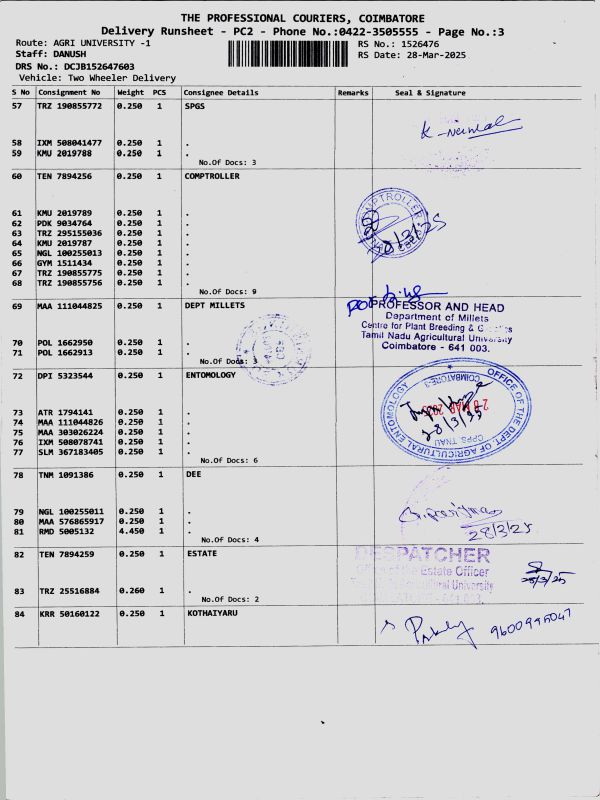 THE PROFESSIONAL COURIERS, COIMBATORE
Delivery Runsheet - PC2 - Phone No.:0422-3505555 - Page No.:3
Route: AGRI UNIVERSITY -1
RS No.: 1526476
Staff: DANUSH
RS Date: 28-Mar-2025
DRS No.: DCJB152647603
Vehicle: Two Wheeler Delivery
S No Consignment No Weight PCS Consignee Details Remarks Seal & Signature
57 TRZ 190855772 0.250 1 SPGS
58 IXM 508041477 0.250 1 .
59 KMU 2019788 0.250 1 .
No.Of Docs: 3
60 TEN 7894256 0.250 1 COMPTROLLER
COMPTROLLER
61 KMU 2019789 0.250 1 .
62 PDK 9034764 0.250 1 .
63 TRZ 295155036 0.250 1 .
64 KMU 2019787 0.250 1 .
65 NGL 100255013 0.250 1 .
66 GYM 1511434 0.250 1 .
67 TRZ 190855775 0.250 1 .
68 TRZ 190855756 0.250 1 .
No.Of Docs: 9
69 MAA 111044825 0.250 1 DEPT MILLETS
PROFESSOR AND HEAD
Department of Millets
Centre for Plant Breeding &
Tamil Nadu Agricultural University
Coimbatore - 641 003.
70 POL 1662950 0.250 1 .
71 POL 1662913 0.250 1 .
No.Of Docs: 3
72 DPI 5323544 0.250 1 ENTOMOLOGY
OFFICE OF THE DEPT. OF AGRICULTURAL ENTOMOLOGY
CPPS, TNAU
COIMBATORE-3
28 MAR 2025
28/3/25
73 ATR 1794141 0.250 1 .
74 MAA 111044826 0.250 1 .
75 MAA 303026224 0.250 1 .
76 IXM 508078741 0.250 1 .
77 SLM 367183405 0.250 1 .
No.Of Docs: 6
78 TNM 1091386 0.250 1 DEE
79 NGL 100255011 0.250 1 .
80 MAA 576865917 0.250 1 .
81 RMD 5005132 4.450 1 .
28/3/25
No.Of Docs: 4
82 TEN 7894259 0.250 1 ESTATE
DESPATCHER
Office of the Estate Officer
Agricultural University
641 003.
28/3/25
83 TRZ 25516884 0.260 1 .
No.Of Docs: 2
84 KRR 50160122 0.250 1 KOTHAIYARU